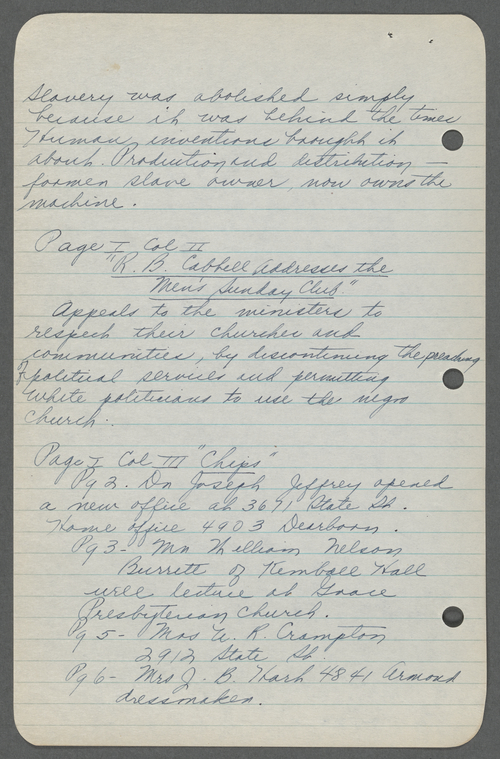 Slavery was abolished simply
because it was behind the times
Human inventions brought it
about. Production and distribution —
former slave owner, now owns the
machine.
Page I Col II
"R. B. Cabbell addresses the
Men's Sunday Club."
Appeals to the ministers to
respect their churches and
communities, by discontinuing the preaching
of political services and permitting
White politicians to use the negro
Church.
Page I Col III "Chips"
Pg 2. Dr Joseph Jeffrey opened
a new office at 3671 State St.
Home office 4903 Dearborn.
Pg 3- Mr William Nelson
Burritt of Kimball Hall
will lecture at Grace
Presbyterian Church.
Pg 5- Mrs A. R. Crampton
2912 State St.
Pg 6- Mrs J. B. 4841 Armond
dressmaker.